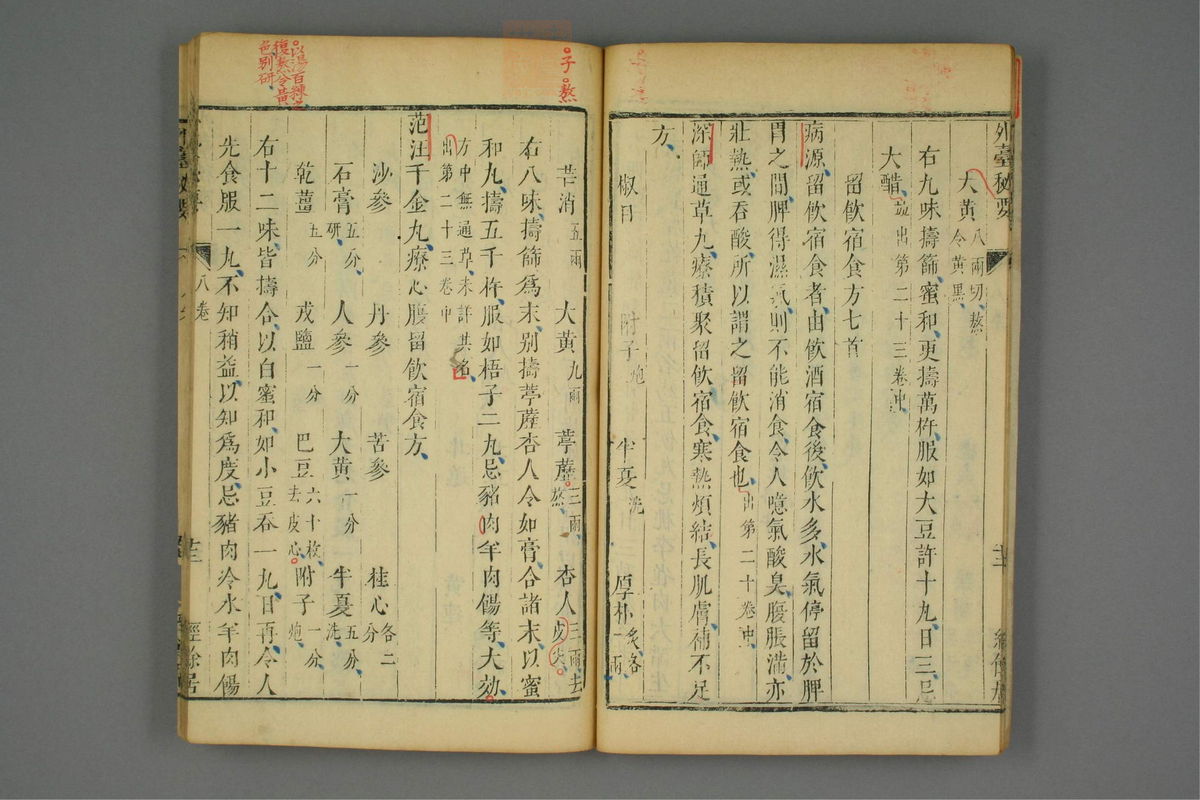 外臺秘要
大黃八兩切熬令黃黑
右九味擣篩蜜和更擣萬杵服如大豆許十九日三忌
大醋並出第二十三卷中
留飲宿食方七首
病源留飲宿食者由飲酒宿食後飲水多水氣停留於脾
胃之間脾得濕氣則不能消食令人噫氣酸臭腹脹滿亦
壯熱或吞酸所以謂之留飲宿食也出第二十卷中
深師通草丸療積聚留飲宿食寒熱煩結長肌膚補不足
方
椒目 附子炮 半夏洗 厚朴炙各一兩
芒消五兩 大黃九兩 葶藶三兩熬 杏人三兩去皮尖
右八味擣篩爲末別擣葶藶杏人令如膏合諸末以蜜
和丸擣五千杵服如梧子二丸忌豬肉羊肉餳等大効
方中無通草未詳其名
出第二十三卷中
范汪千金丸療心腹留飲宿食方
沙參 丹參 苦參 桂心各二分
石膏五分研 人參一分 大黃一分 半夏五分洗
乾薑五分 戎鹽一分 巴豆六十枚去皮心 附子一分炮
右十二味皆擣合以白蜜和如小豆吞一丸日再令人
先食服一丸不知稍益以知爲度忌豬肉冷水羊肉餳
八卷
經餘居
子熬
以湯百
復熬令黃
色別研